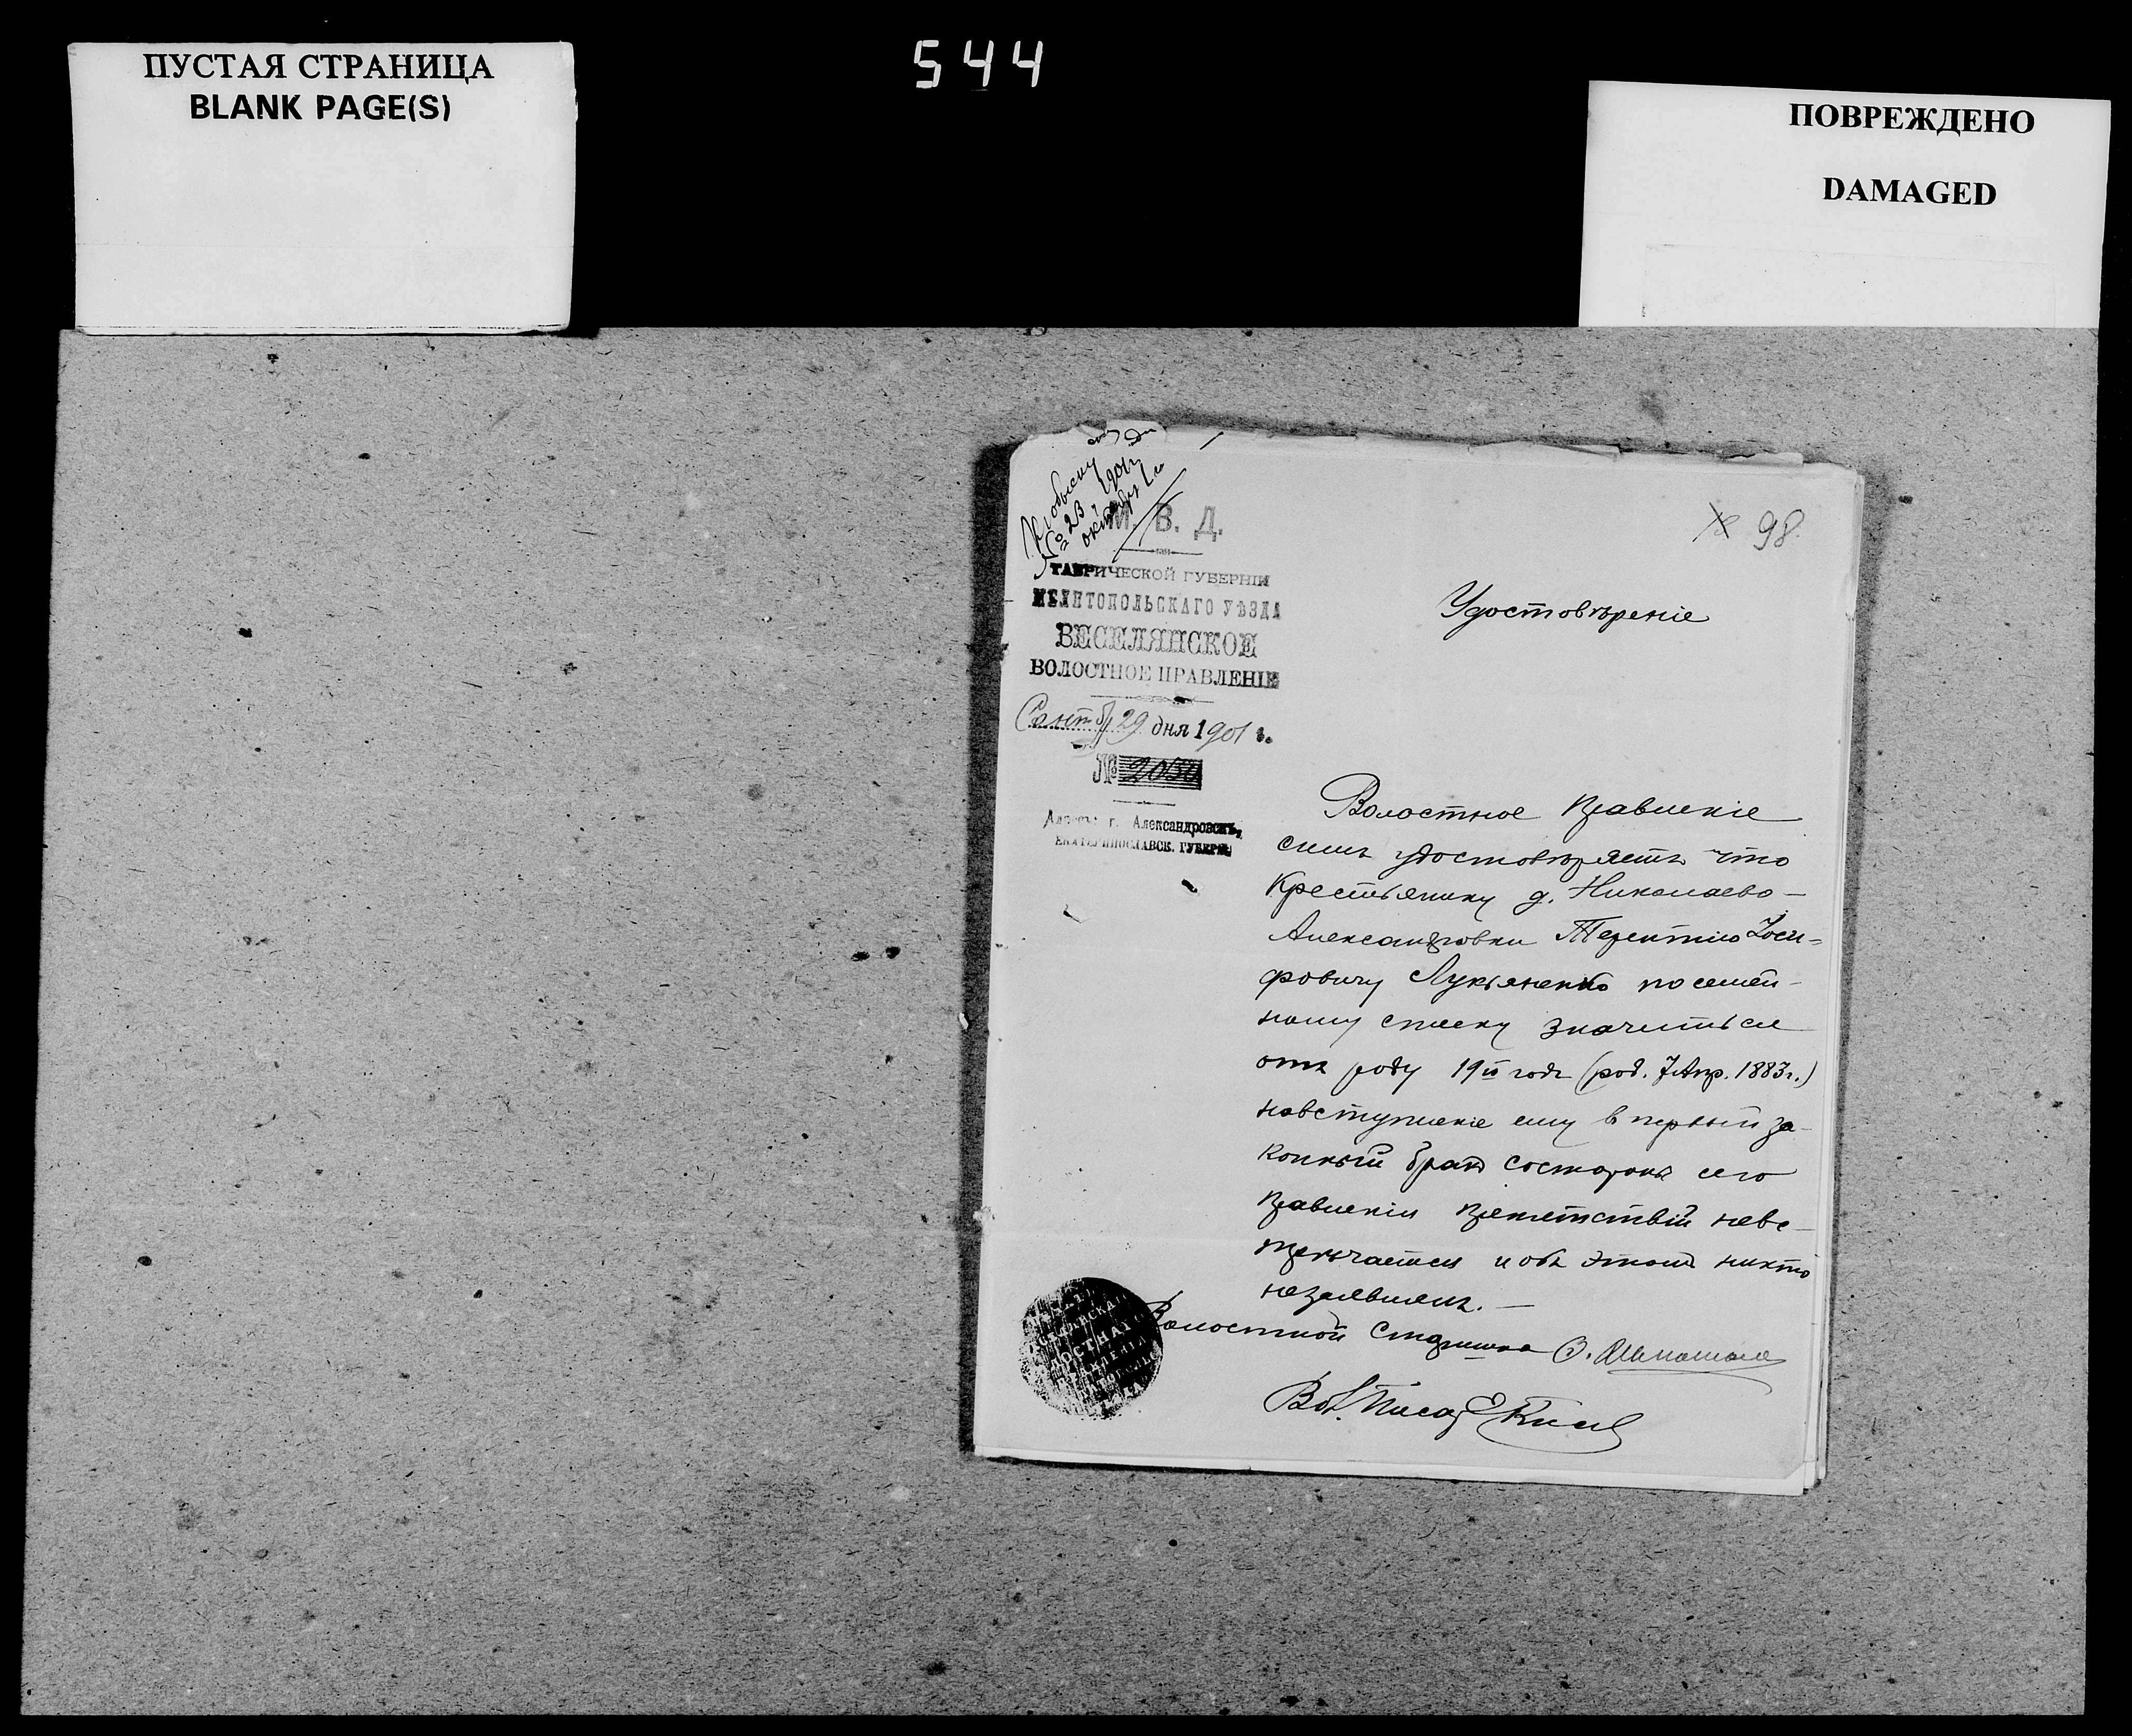 ПУСТАЯ СТРАНИЦА
BLANK PAGE(S)
544
ПОВРЕЖДЕНО
DAMAGED
обыску
№ 23 1901 г.
октября 1 го
М. В. Д.
98
ТАВРИЧЕСКОЙ ГУБЕРНІИ
МЕЛИТОПОЛЬСКАГО УѢЗДА
ВЕСЕЛЯНСКОЕ
ВОЛОСТНОЕ ПРАВЛЕНІЕ
29 дня 1901 г.
№ 2030
Адресъ: г. Александровскъ,
ЕКАТЕРИНОСЛАВСК. ГУБЕРН.
Удостовѣреніе
Волостное Правленіе
симъ удостовѣряетъ что
Крестьянину д. Николаево-
Александровки Терентію Іоси=
фовичу Лукьяненко по семей-
ному списку значиться
отъ роду 19й годъ (род. 7 Апр. 1883 г.)
навступленіе ему в первый за-
конный бракъ состороны сего
Правленія препятствій невс-
тречается и объ этомъ никто
незаявлялъ. —
Волостной Старшина
Вол. Писарь